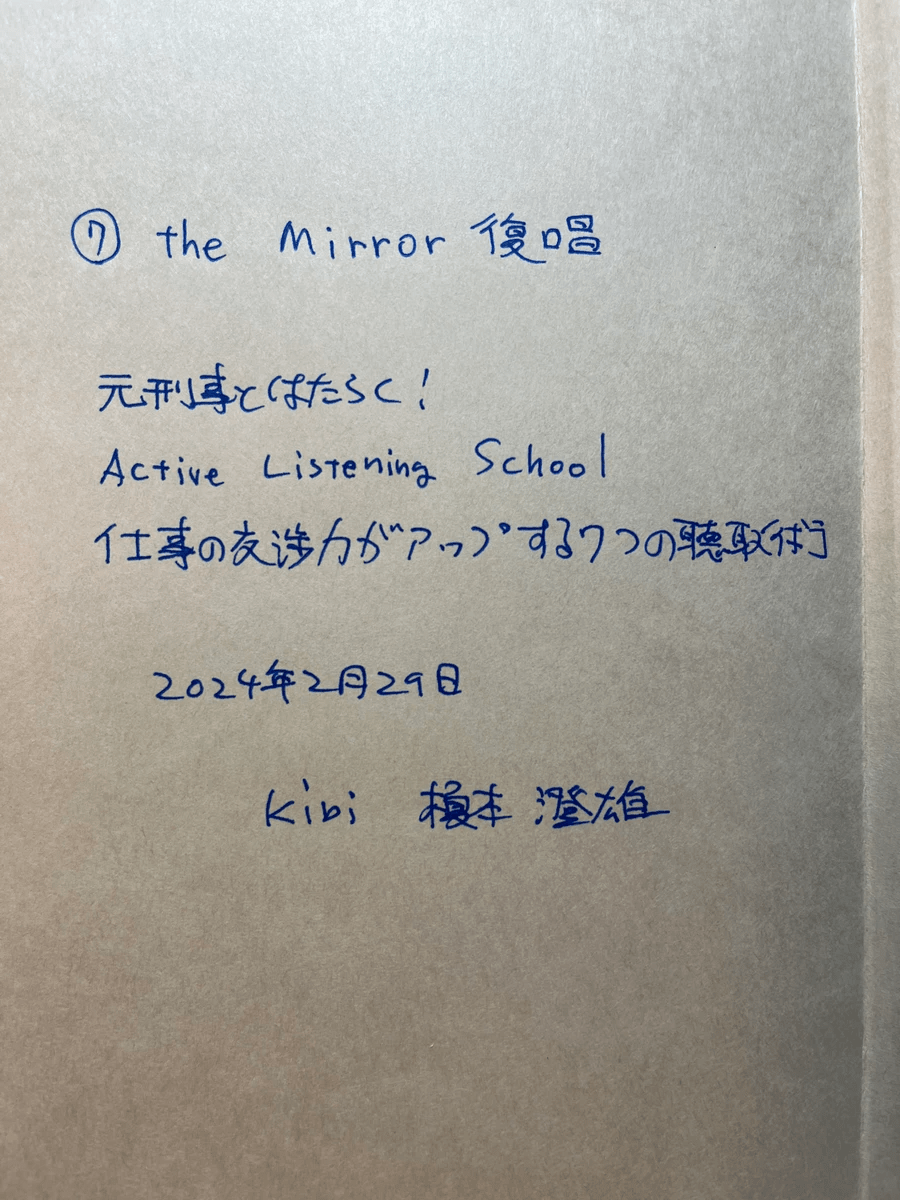 ⑦ the Mirror 復唱
元刑事とはたらく!
Active Listening School
仕事の交渉力がアップする7つの聴取作法
2024年2月29日
kibi 榎本 澄雄